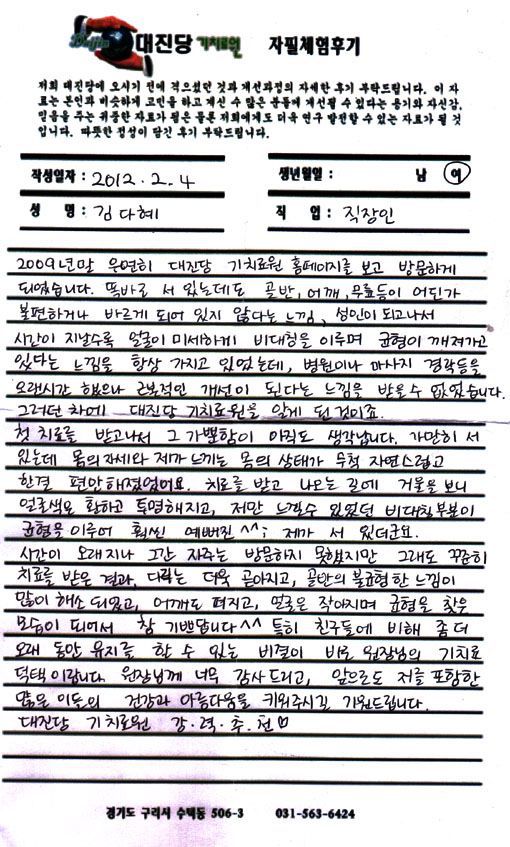 Daejin 대진당 기치료원 자필체험후기
저희 대진당에 오시기 전에 적으셨던 것과 개선과정의 자세한 후기 부탁드립니다. 이 자
료는 본인과 비슷하게 고민을 하고 계신 수 많은 분들께 개선될 수 있다는 용기와 자신감,
믿음을 주는 귀중한 자료가 됨은 물론 저희에게도 더욱 연구 발전할 수 있는 자료가 될 것
입니다. 따뜻한 정성이 담긴 후기 부탁드립니다.
작성일자 : 2012. 2. 4 생년월일 : 남 여
성 명 : 김다혜 직 업 : 직장인
2009년말 우연히 대진당 기치료원 홈페이지를 보고 방문하게
되었습니다. 똑바로 서 있는데도 골반, 어깨, 무릎등이 어딘가
불편하거나 바르게 되어 있지 않다는 느낌, 성인이 되고나서
시간이 지날수록 얼굴이 미세하게 비대칭을 이루며 균형이 깨져가고
있다는 느낌을 항상 가지고 있었는데, 병원이나 마사지 경락등을
오랜시간 했으나 근본적인 개선이 된다는 느낌을 받을수 없었습니다.
그러던 차에 대진당 기치료원을 알게 된 것이죠.
첫 치료를 받고나서 그 가뿐함이 아직도 생각납니다. 가만히 서
있는데 몸의 자세와 제가 느끼는 몸의 상태가 무척 자연스럽고
한결 편안해졌었어요. 치료를 받고 나오는 길에 거울을 보니
얼굴색도 환하고 투명해지고, 저만 느낄수 있었던 비대칭부분이
균형을 이루어 훨씬 예뻐진 ^^; 제가 서 있더군요.
시간이 오래지나 그간 자주는 방문하지 못했지만 그래도 꾸준히
치료를 받은 결과, 다리는 더욱 곧아지고, 골반의 불균형한 느낌이
많이 해소 되었고, 어깨도 펴지고, 얼굴은 작아지며 균형을 찾은
모습이 되어서 참 기쁘답니다^^ 특히 친구들에 비해 좀 더
오래 동안 유지를 할 수 있는 비결이 바로 원장님의 기치료
덕택이랍니다. 원장님께 너무 감사드리고, 앞으로도 저를 포함한
많은 이들의 건강과 아름다움을 키워주시길 기원드립니다.
대진당 기치료원 강·력·추·천♡
경기도 구리시 수택동 506-3 031-563-6424